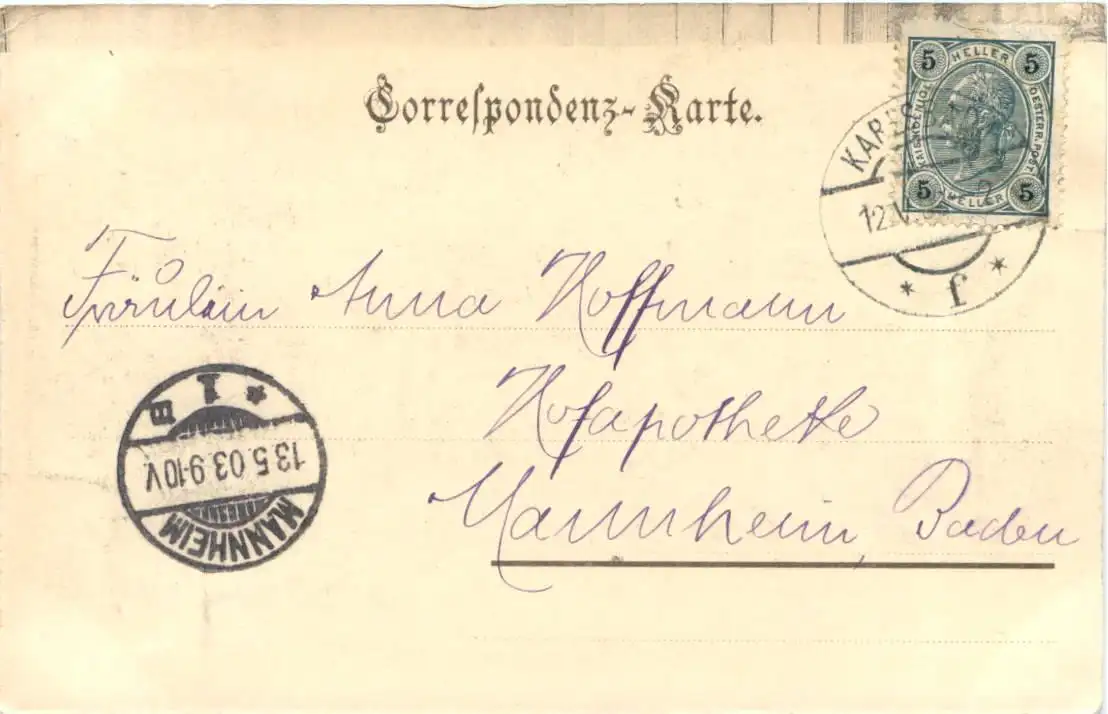 Correspondenz-Karte.
5 HELLER 5
KAIS. KÖNIGL. OESTERR. POST
5 HELLER 5
KARLS
12.V.
*f*
Fräulein Anna Hoffmann
Hofapotheke
Mannheim, Baden
MANNHEIM
13.5.03.9-10V.
* 1 B